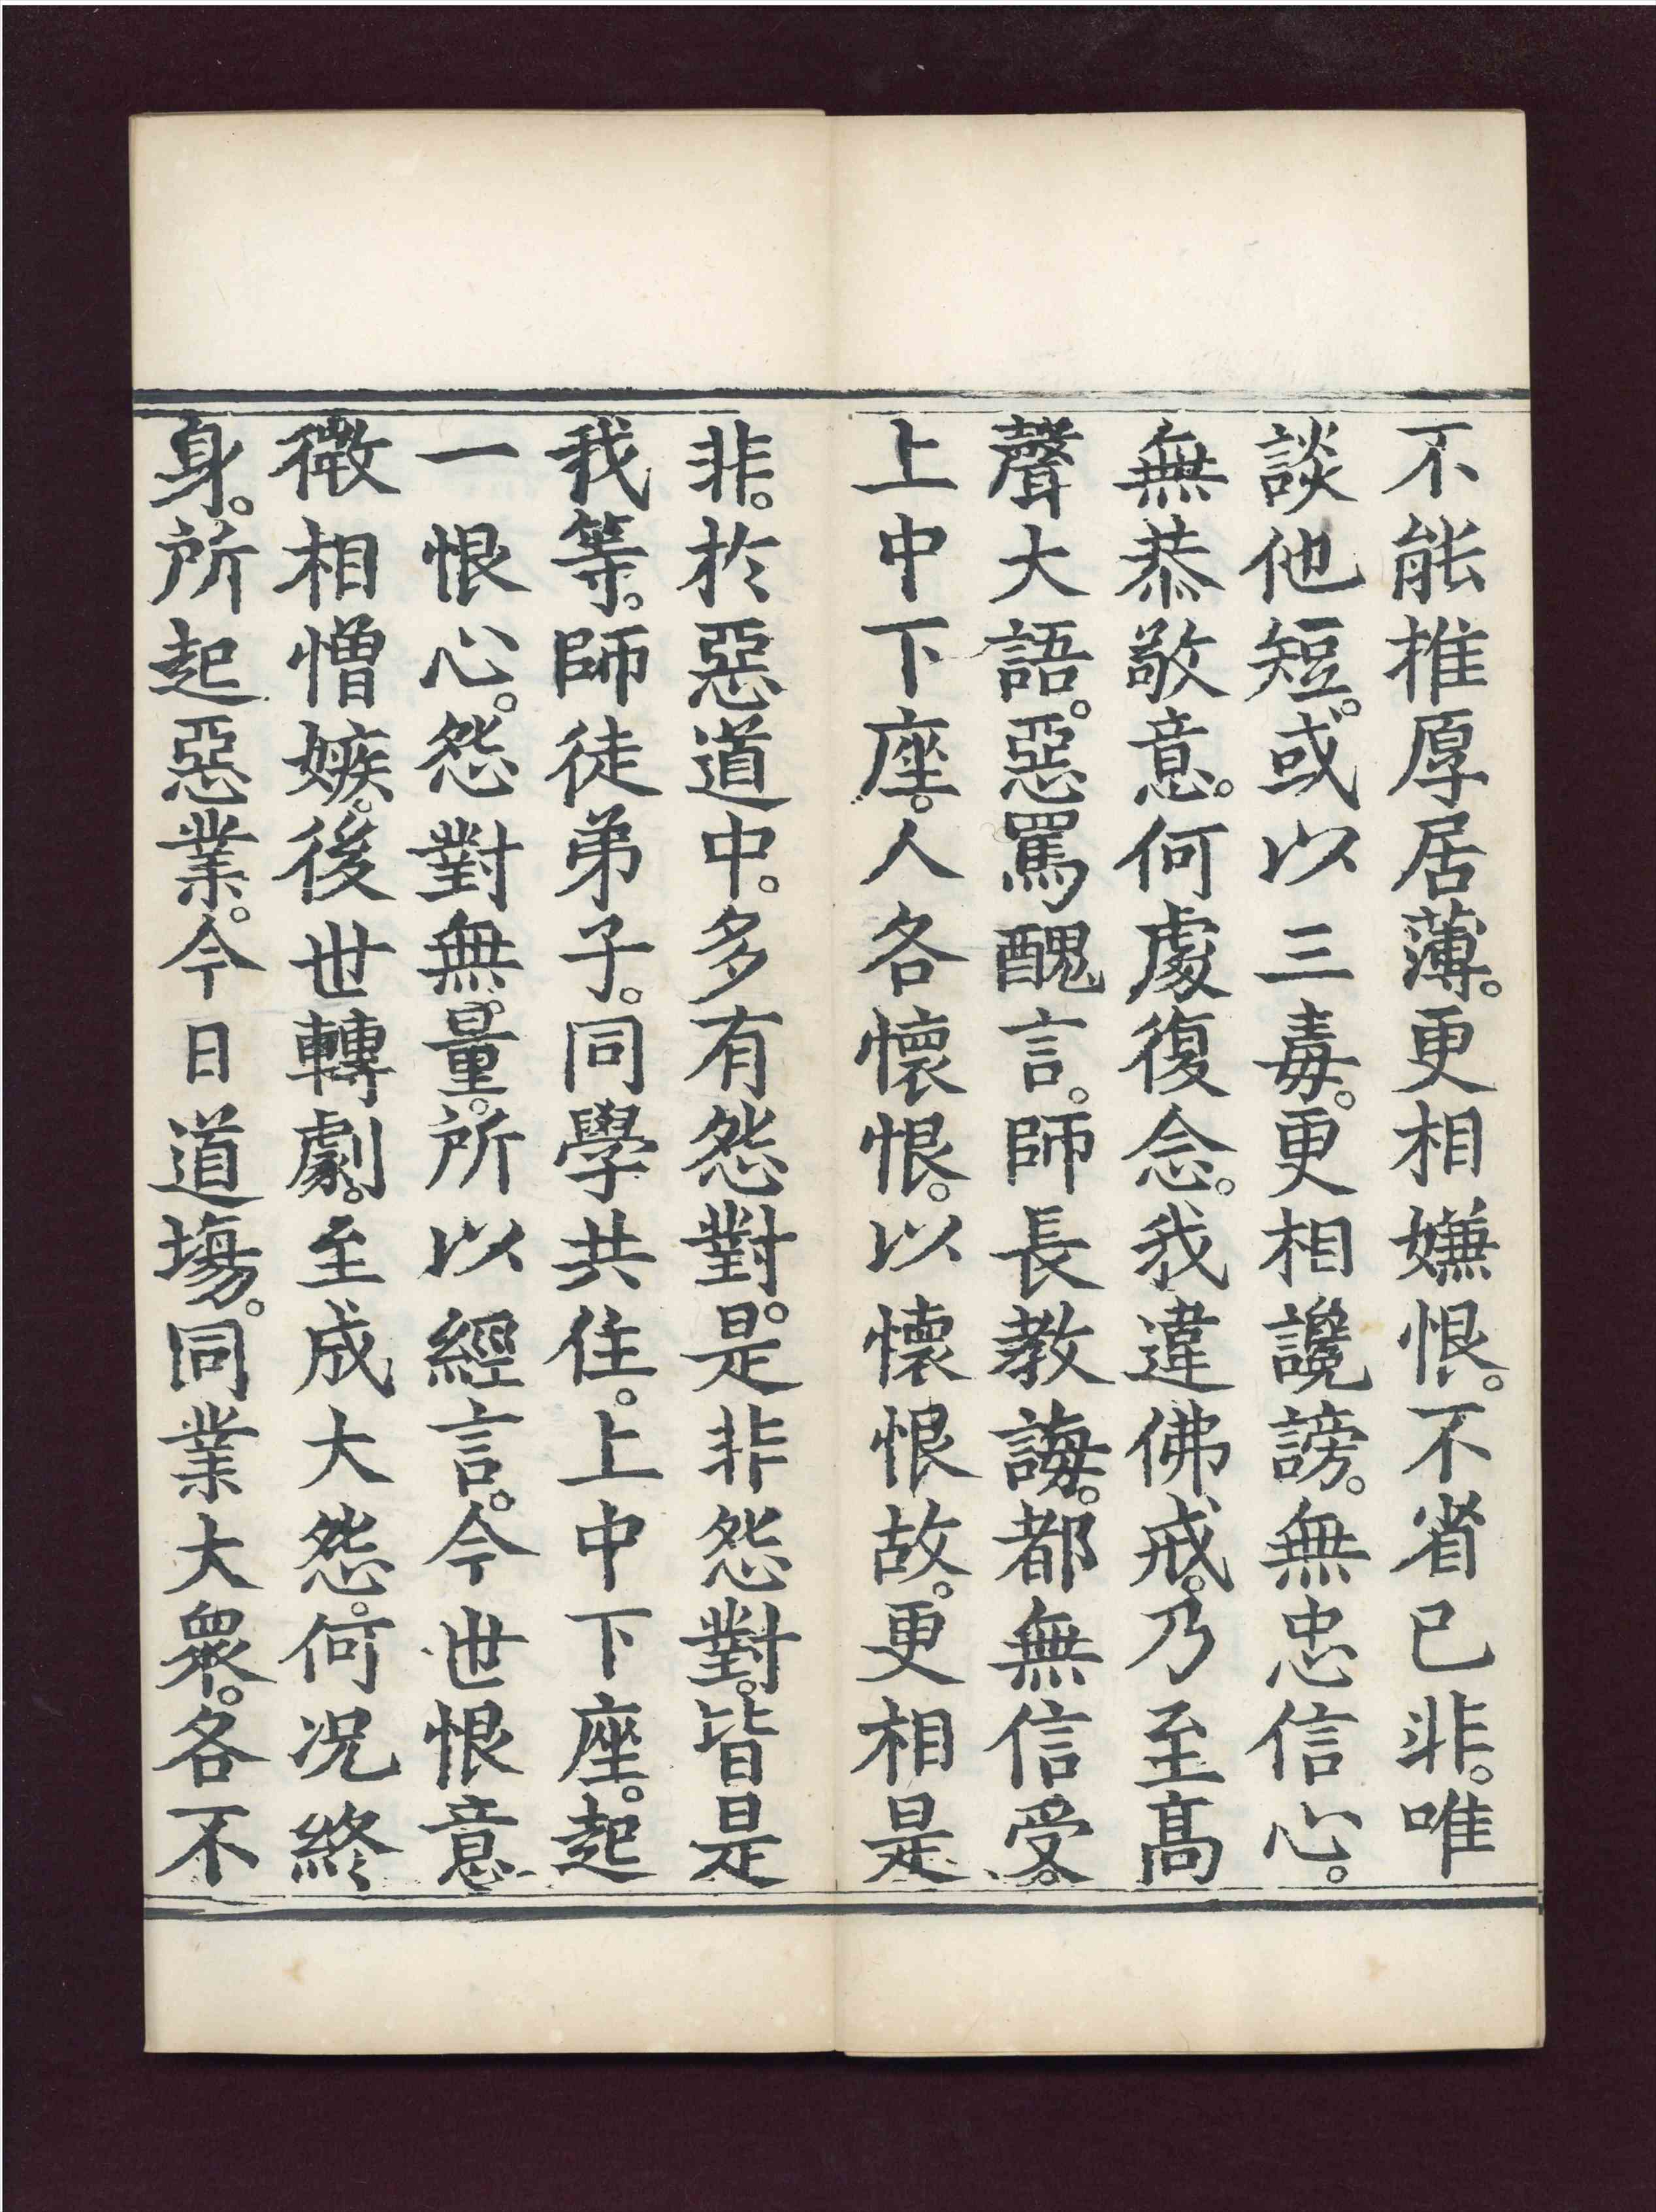 不能推厚居薄。更相嫌恨。不省已非。唯
談他短。或以三毒。更相讒謗。無忠信心。
無恭敬意。何處復念。我違佛戒。乃至高
聲大語。惡罵醜言。師長教誨。都無信受。
上中下座。人各懷恨。以懷恨故。更相是
非。於惡道中。多有怨對。是非怨對。皆是
我等。師徒弟子。同學共住。上中下座。起
一恨心。怨對無量。所以經言。今世恨意
微相憎嫉。後世轉劇。至成大怨。何况終
身。所起惡業。今日道場。同業大衆。各不